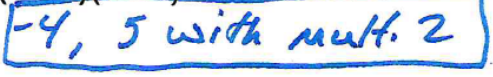 -4, 5 with mult. 2